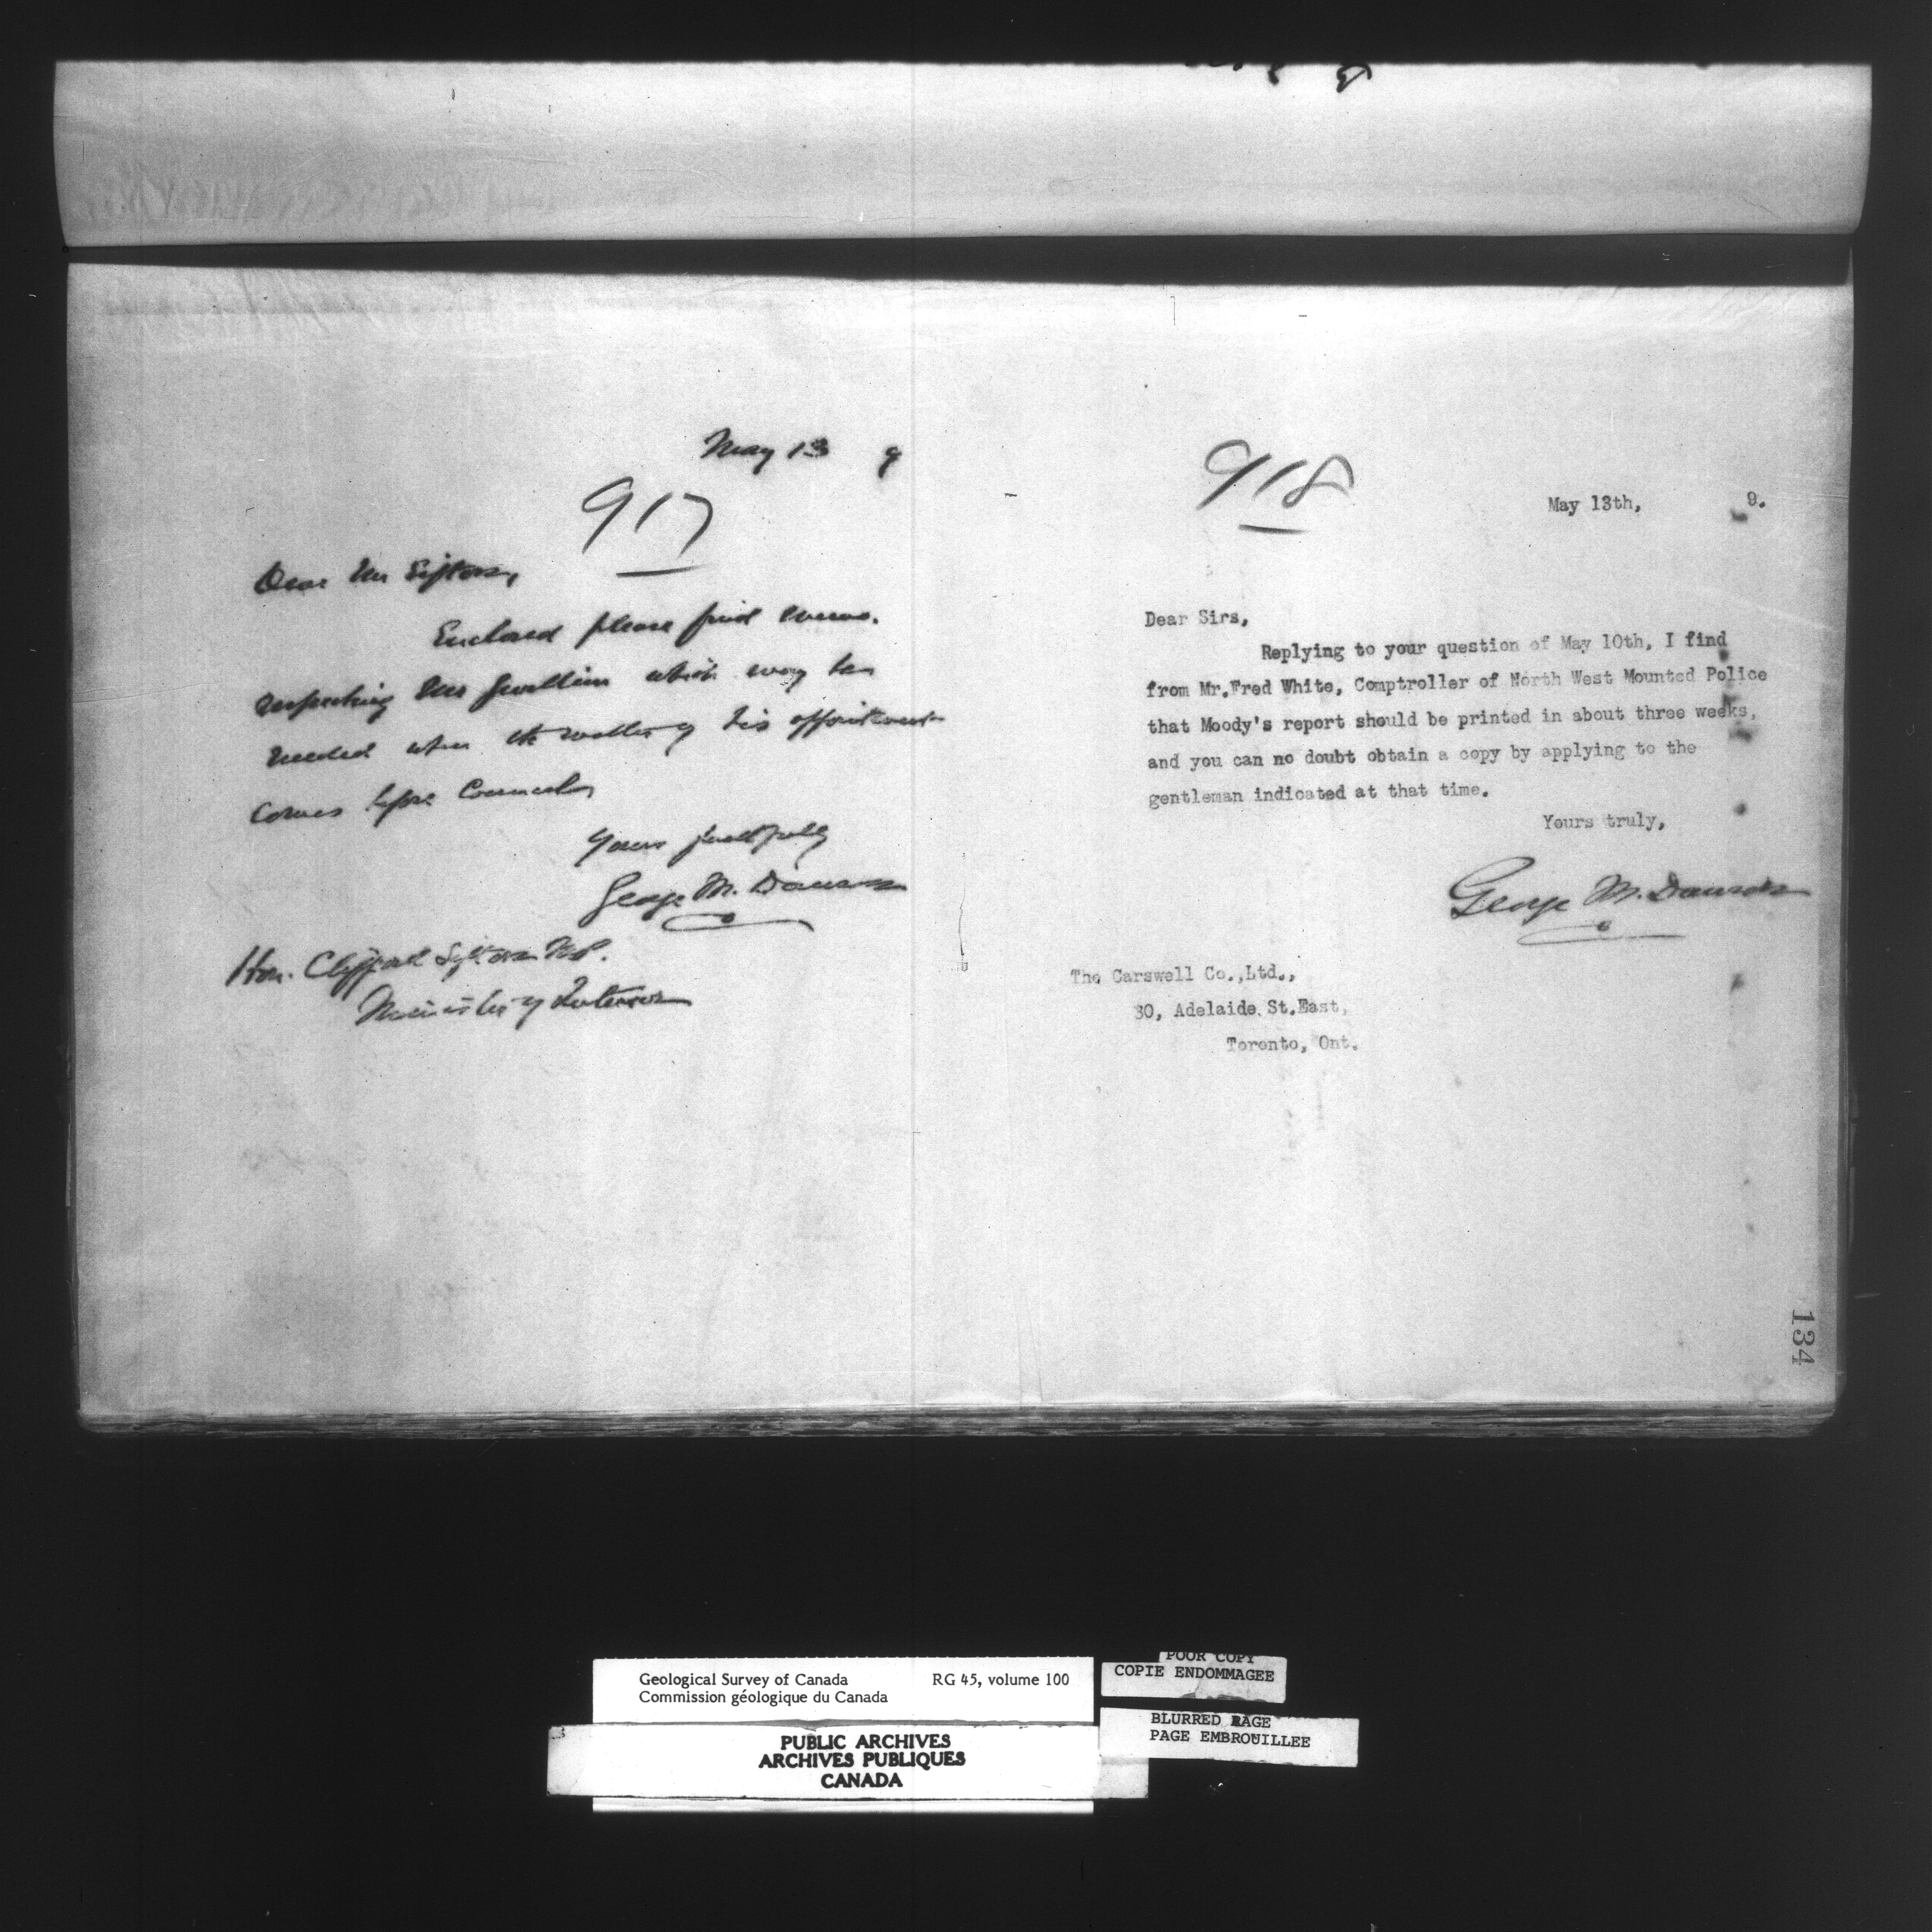 May 13 9
917
Dear Mr Sifton,
Enclosed please find memo.
respecting Mr which may be
needed when the matter of his appointment
comes before Council
Yours faithfully
George M. Dawson
Hon. Clifford Sifton M.P.
Minister of Interior
918
May 13th, 9.
Dear Sirs,
Replying to your question of May 10th, I find
from Mr.Fred White, Comptroller of North West Mounted Police
that Moody's report should be printed in about three weeks,
and you can no doubt obtain a copy by applying to the
gentleman indicated at that time.
Yours truly,
George M. Dawson
The Carswell Co.,Ltd.,
30, Adelaide St.East,
Toronto, Ont.
134
Geological Survey of Canada RG 45, volume 100
Commission géologique du Canada
PUBLIC ARCHIVES
ARCHIVES PUBLIQUES
CANADA
POOR COPY
COPIE ENDOMMAGEE
BLURRED PAGE
PAGE EMBROUILLEE